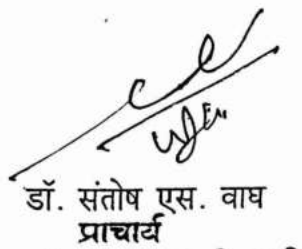 डॉ. संतोष एस. वाघ
प्राचार्य